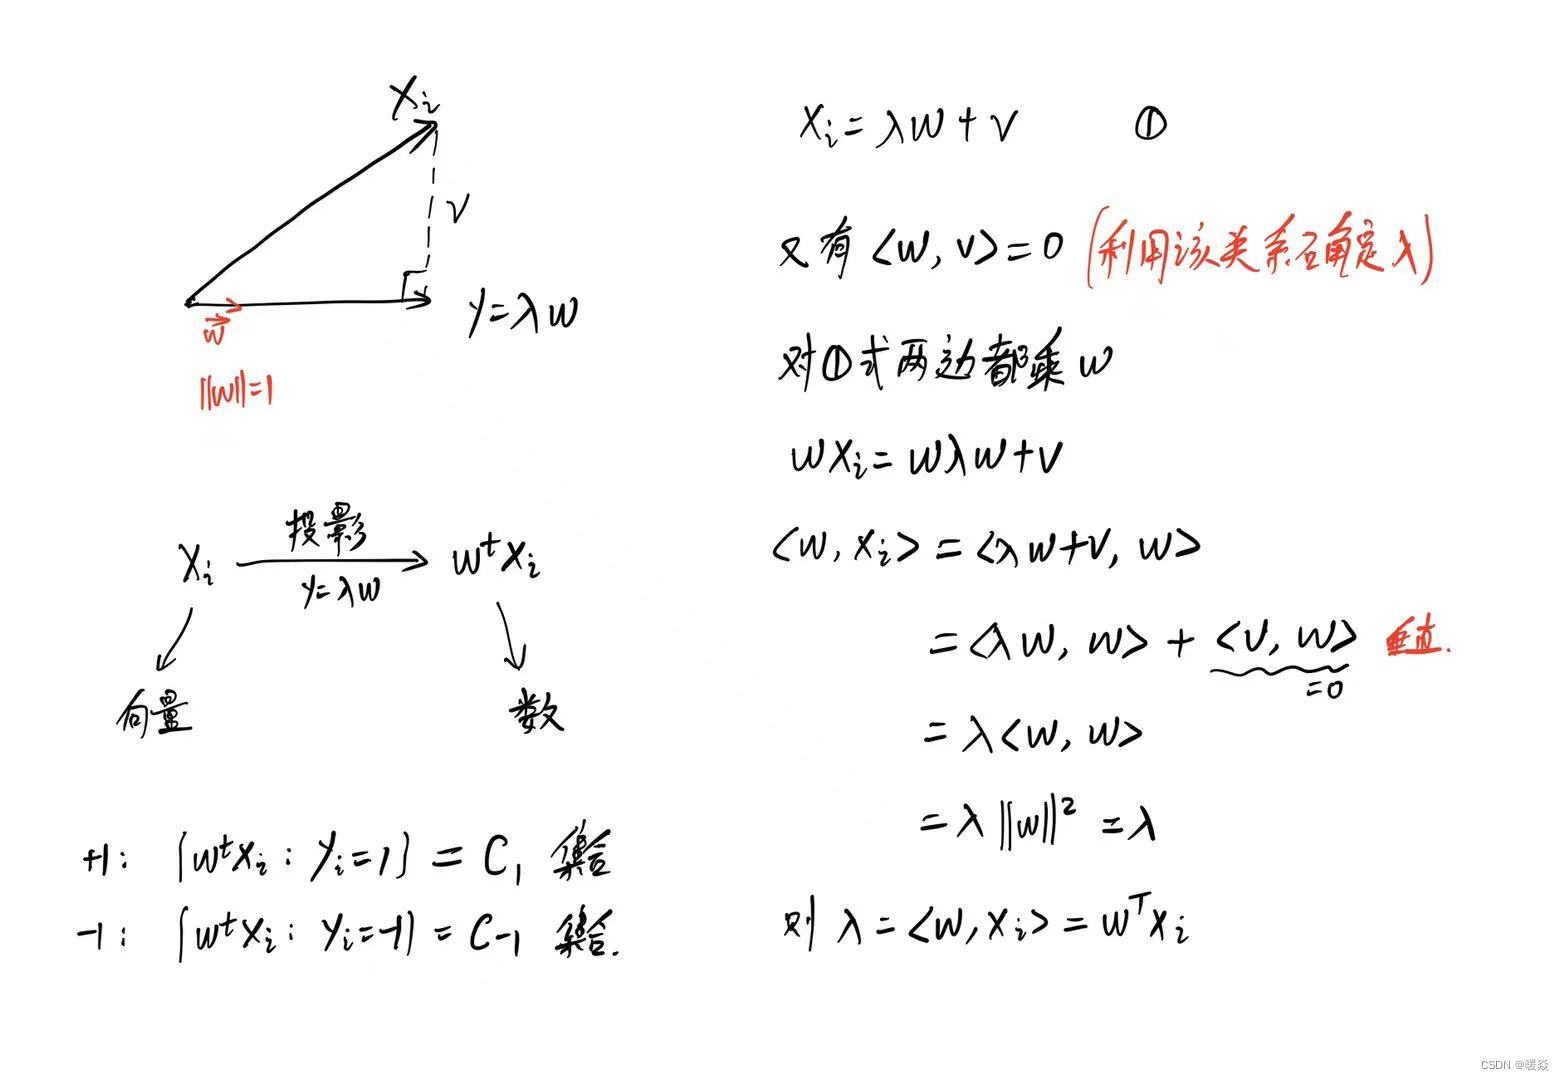 Xᵢ
V
y=λw
w⃗
||w||=1
Xᵢ 投影 wᵗxᵢ
y=λw
向量 数
+1: {wᵗxᵢ: yᵢ=1} = C₁ 集合
-1: {wᵗxᵢ: yᵢ=-1} = C-1 集合.
xᵢ=λw+v ①
又有 <w, v>=0 (利用该类系石角定λ)
对①式两边都乘w
wxᵢ=wλw+v
<w, xᵢ> = <λw+v, w>
= <λw, w> + <v, w> 垂直.
=0
= λ<w, w>
= λ||w||² = λ
则 λ = <w, xᵢ> = wᵀxᵢ
CSDN @暖焱